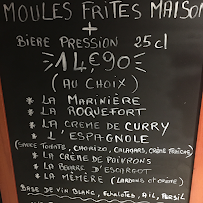 MOULES FRITES MAISON
+
BIERE PRESSION 25cl
14€90
(AU CHOIX)
* LA MARINIÈRE
* LA ROQUEFORT
* LA CREME DE CURRY
* L'ESPAGNOLE
(SAUCE TOMATE, CHORIZO, CALAMARS, CRÈME FRAÎCHE)
* LA CREME DE POIVRONS
* LA BEURRE D'ESCARGOT
* LA MÉMÈRE (LARDONS et CRÈME)
BASE DE VIN BLANC, ECHALOTES, AIL, PERSIL